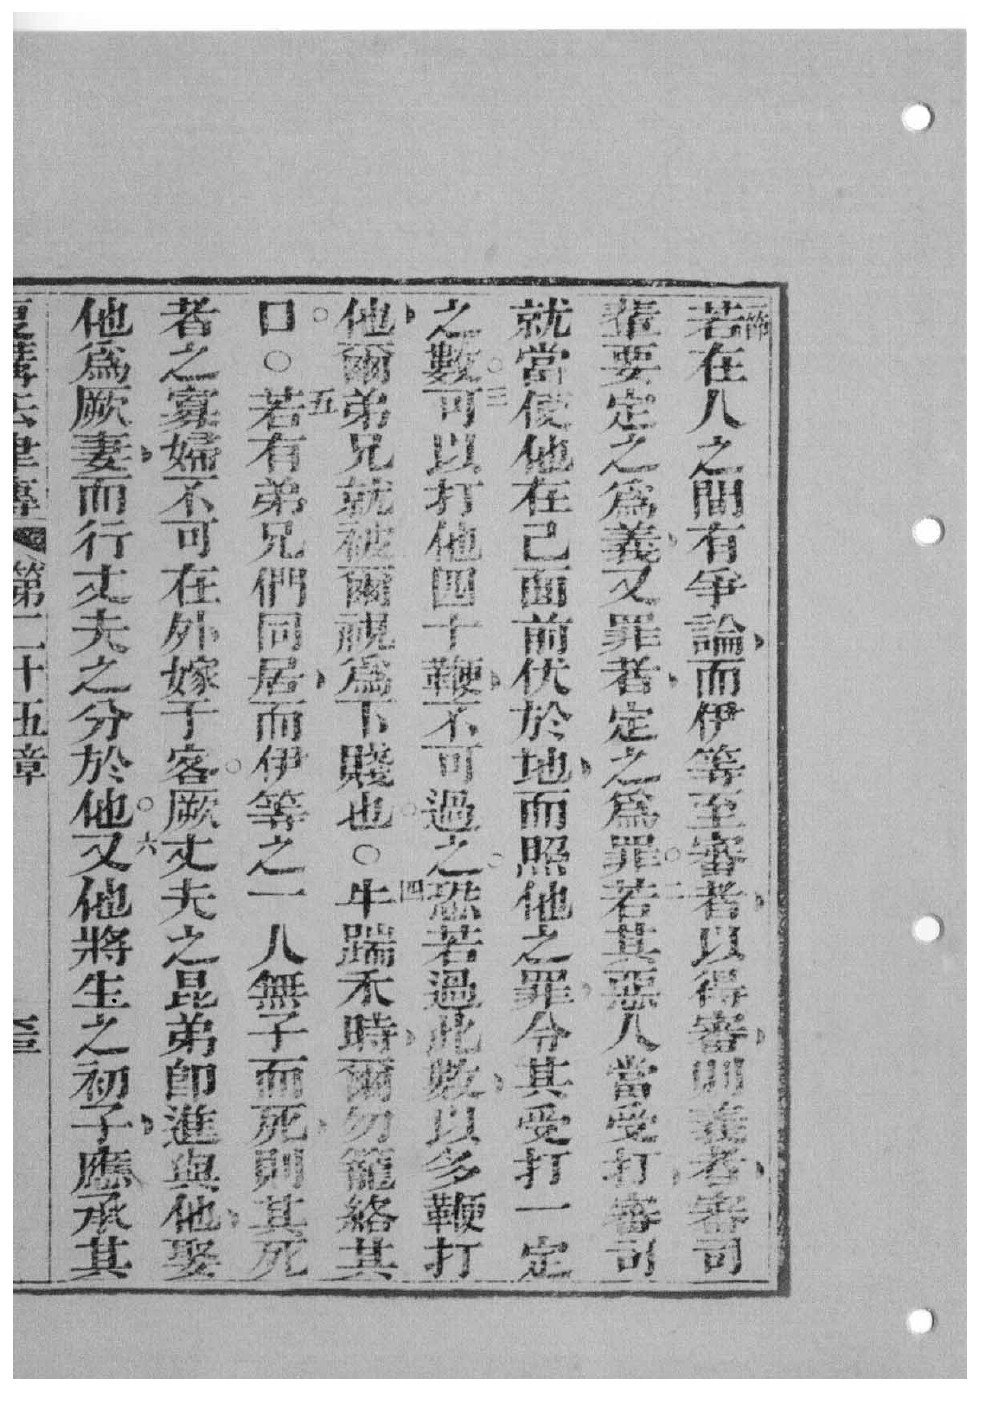 節若在人之間有爭論而伊等至審者以得審則義者審司
輩要定之爲義又罪者定之爲罪○二若其惡人當受打審司
就當使他在己面前伏於地而照他之罪分其受打一定
之數○三可以打他四十鞭不可過之○恐若過此數以多鞭打
他爾弟兄就被爾視爲下賤也○四牛踹禾時爾勿籠絡其
口○五若有弟兄們同居而伊等之一人無子而死則其死
者之寡婦不可在外嫁于客○厥丈夫之昆弟卽進與他娶
他爲厥妻而行丈夫之分於他○六又他將生之初子應承其
復講法律傳 第二十五章